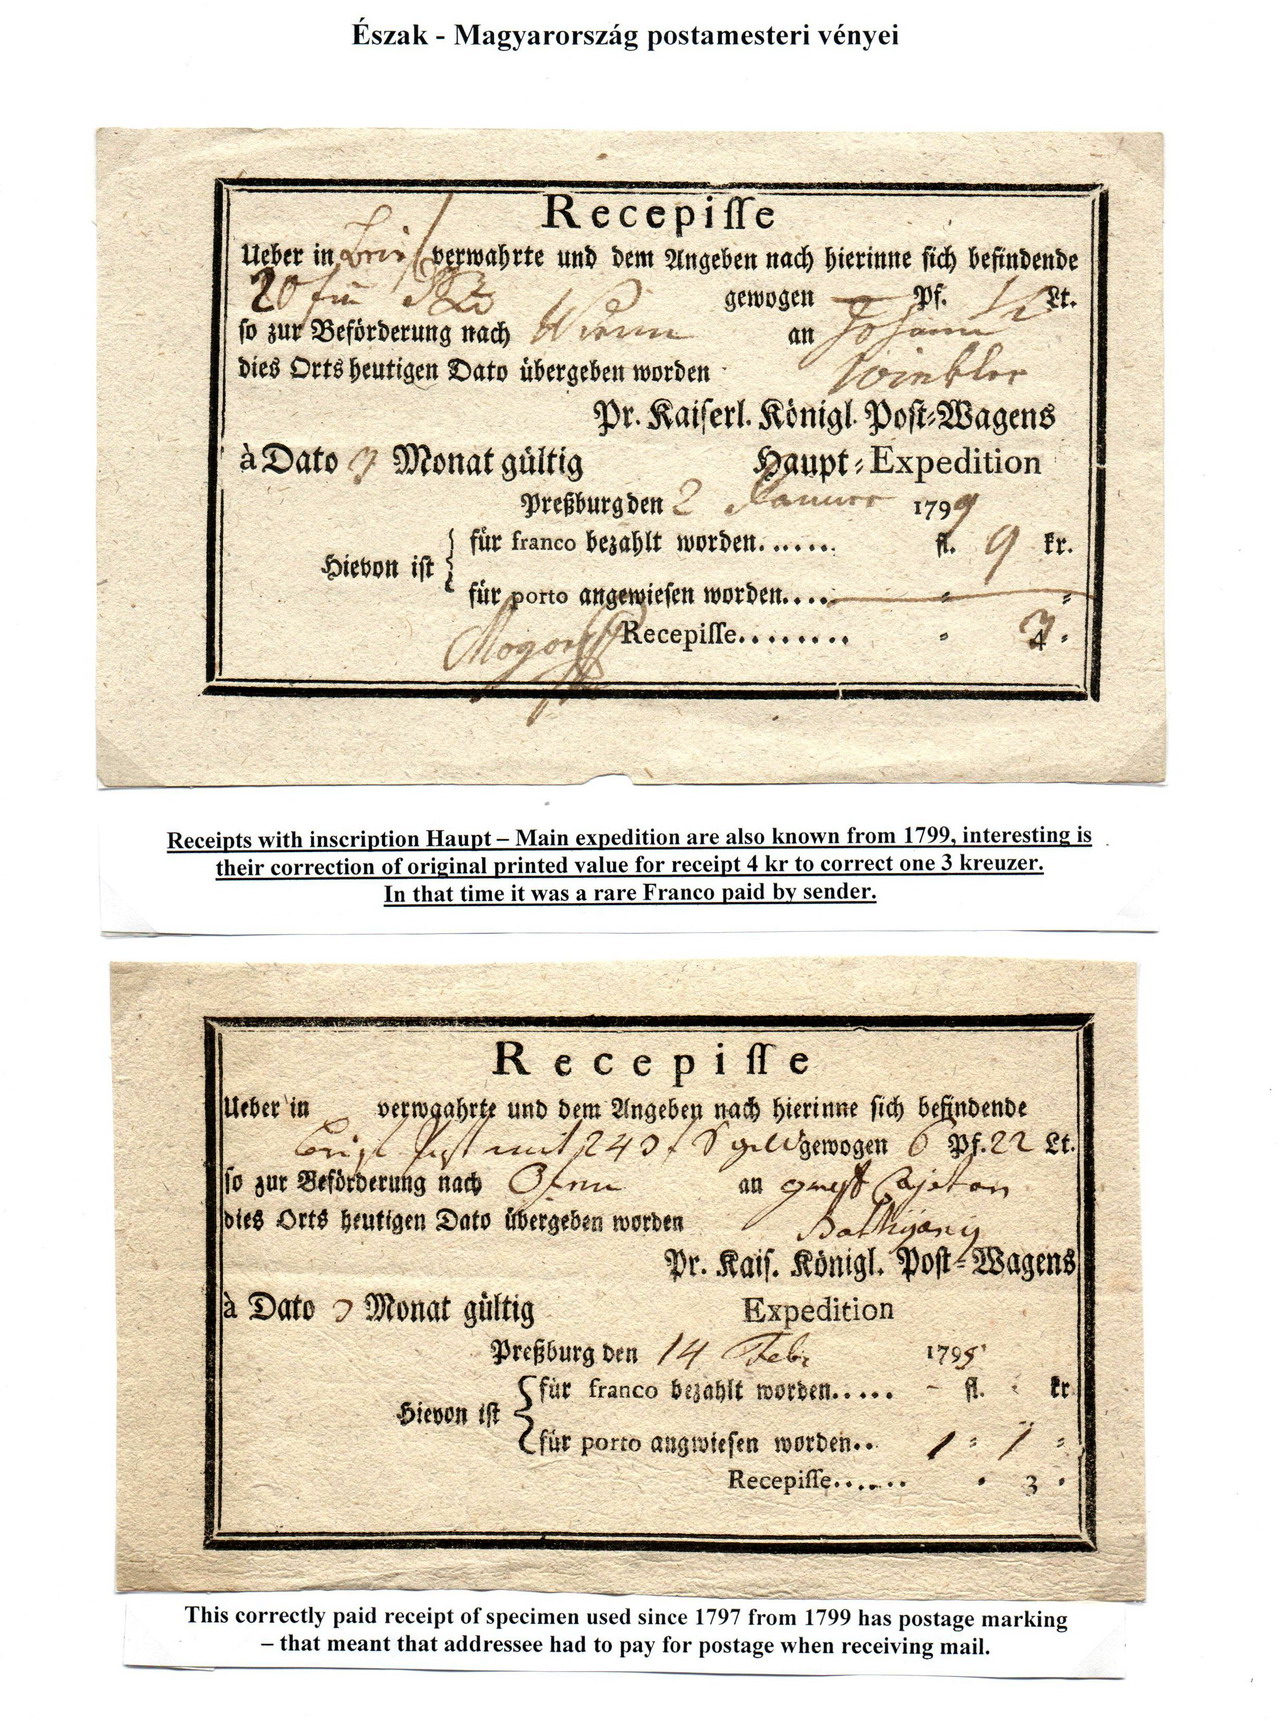 Észak - Magyarország postamesteri vényei
Recepiſſe
Ueber in Brief verwahrte und dem Angeben nach hierinne ſich befindende
20 gewogen Pf. ½ Lt.
ſo zur Beförderung nach Wienn an Johann
dies Orts heutigen Dato übergeben worden Winkler
Pr. Kaiſerl. Königl. Poſt-Wagens
à Dato 3 Monat gültig Haupt-Expedition
Preßburg den 2 Januer 1799
für franco bezahlt worden...... fl. 9 kr.
Hievon iſt
für porto angewieſen worden....
Recepiſſe........ 4
Receipts with inscription Haupt – Main expedition are also known from 1799, interesting is
their correction of original printed value for receipt 4 kr to correct one 3 kreuzer.
In that time it was a rare Franco paid by sender.
Recepiſſe
Ueber in verwgahrte und dem Angeben nach hierinne ſich befindende
mit 243 f gewogen 6 Pf. 22 Lt.
ſo zur Beförderung nach Ofnn an Cajetan
dies Orts heutigen Dato übergeben worden Bathyany
Pr. Kaiſ. Königl. Poſt-Wagens
à Dato 3 Monat gültig Expedition
Preßburg den 14 Febr 1799
für franco bezahlt worden..... - fl. kr
Hievon iſt
für porto angwieſen worden.. 1 = 1 =
Recepiſſe....... 3
This correctly paid receipt of specimen used since 1797 from 1799 has postage marking
– that meant that addressee had to pay for postage when receiving mail.